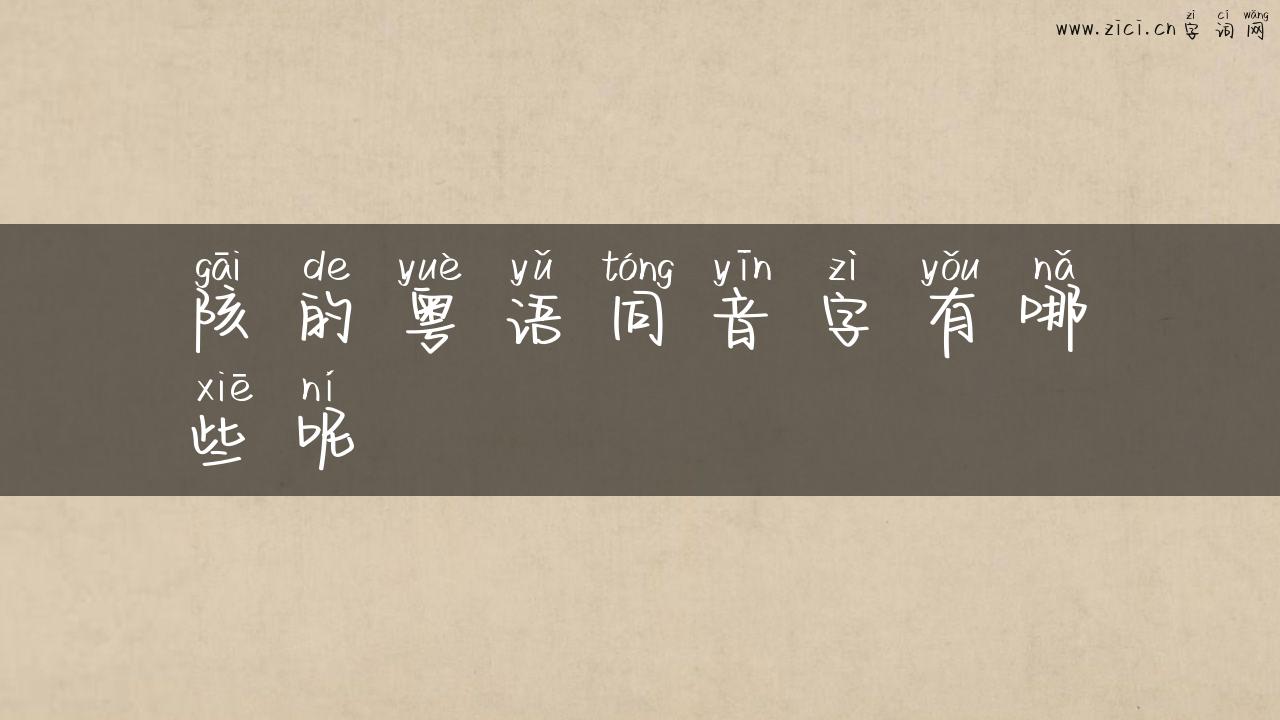 zì cí wǎng
www.zici.cn 字词网
gāi de yuè yǔ tóng yīn zì yǒu nǎ
陔的粤语同音字有哪
xiē ní
些呢